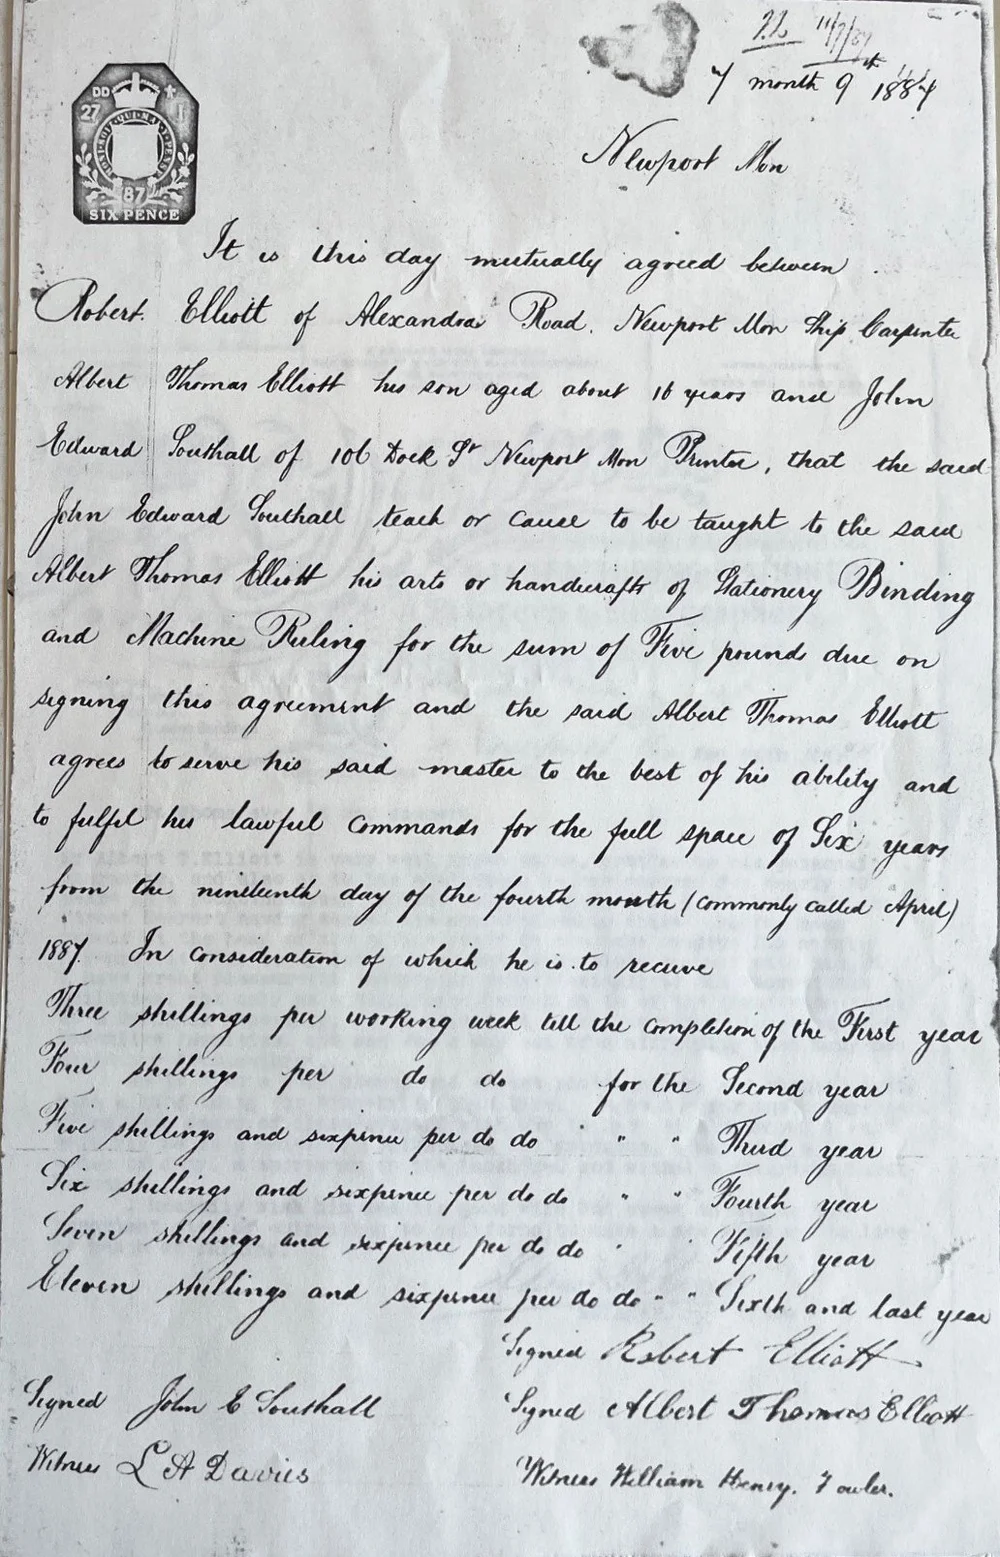 22 11/7/87
7 month 9th 1887
Newport Mon
DD
27
HONI·SOIT·QUI·MAL·Y·PENSE
87
SIX PENCE
It is this day mutually agreed between
Robert Elliott of Alexandra Road. Newport Mon Ship Carpenter
Albert Thomas Elliott his son aged about 16 years and John
Edward Southall of 106 Dock St Newport Mon Printer, that the said
John Edward Southall teach or cause to be taught to the said
Albert Thomas Elliott his arts or handicrafts of Stationery Binding
and Machine Ruling for the sum of Five pounds due on
signing this agreement and the said Albert Thomas Elliott
agrees to serve his said master to the best of his ability and
to fulfil his lawful commands for the full space of Six years
from the nineteenth day of the fourth month (commonly called April)
1887. In consideration of which he is to receive
Three shillings per working week till the completion of the First year
Four shillings per do do for the Second year
Five shillings and sixpence per do do " " Third year
Six shillings and sixpence per do do " " Fourth year
Seven shillings and sixpence per do do " " Fifth year
Eleven shillings and sixpence per do do " " Sixth and last year
Signed Robert Elliott
Signed John E Southall Signed Albert Thomas Elliott
Witness L A Davies Witness William Henry. Fowler.